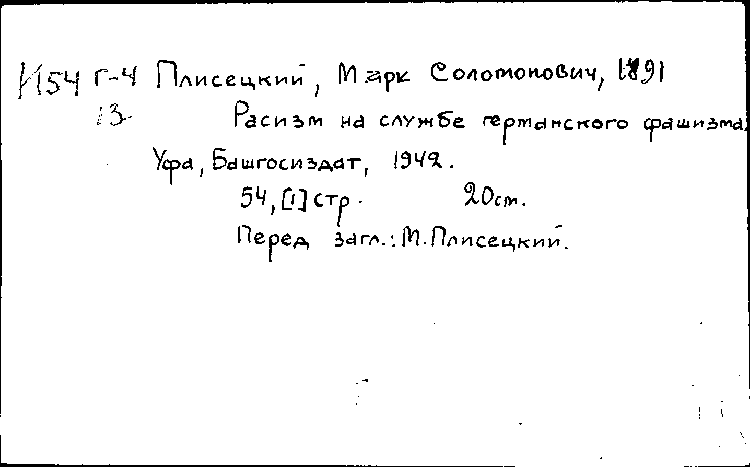 И54 Г-4 Плисецкий, Марк Соломонович, 1891
13 Расизм на службе германского фашизма.
Уфа, Башгосиздат, 1942.
54, [1] стр. 20 см.
Перед загл.: М. Плисецкий.